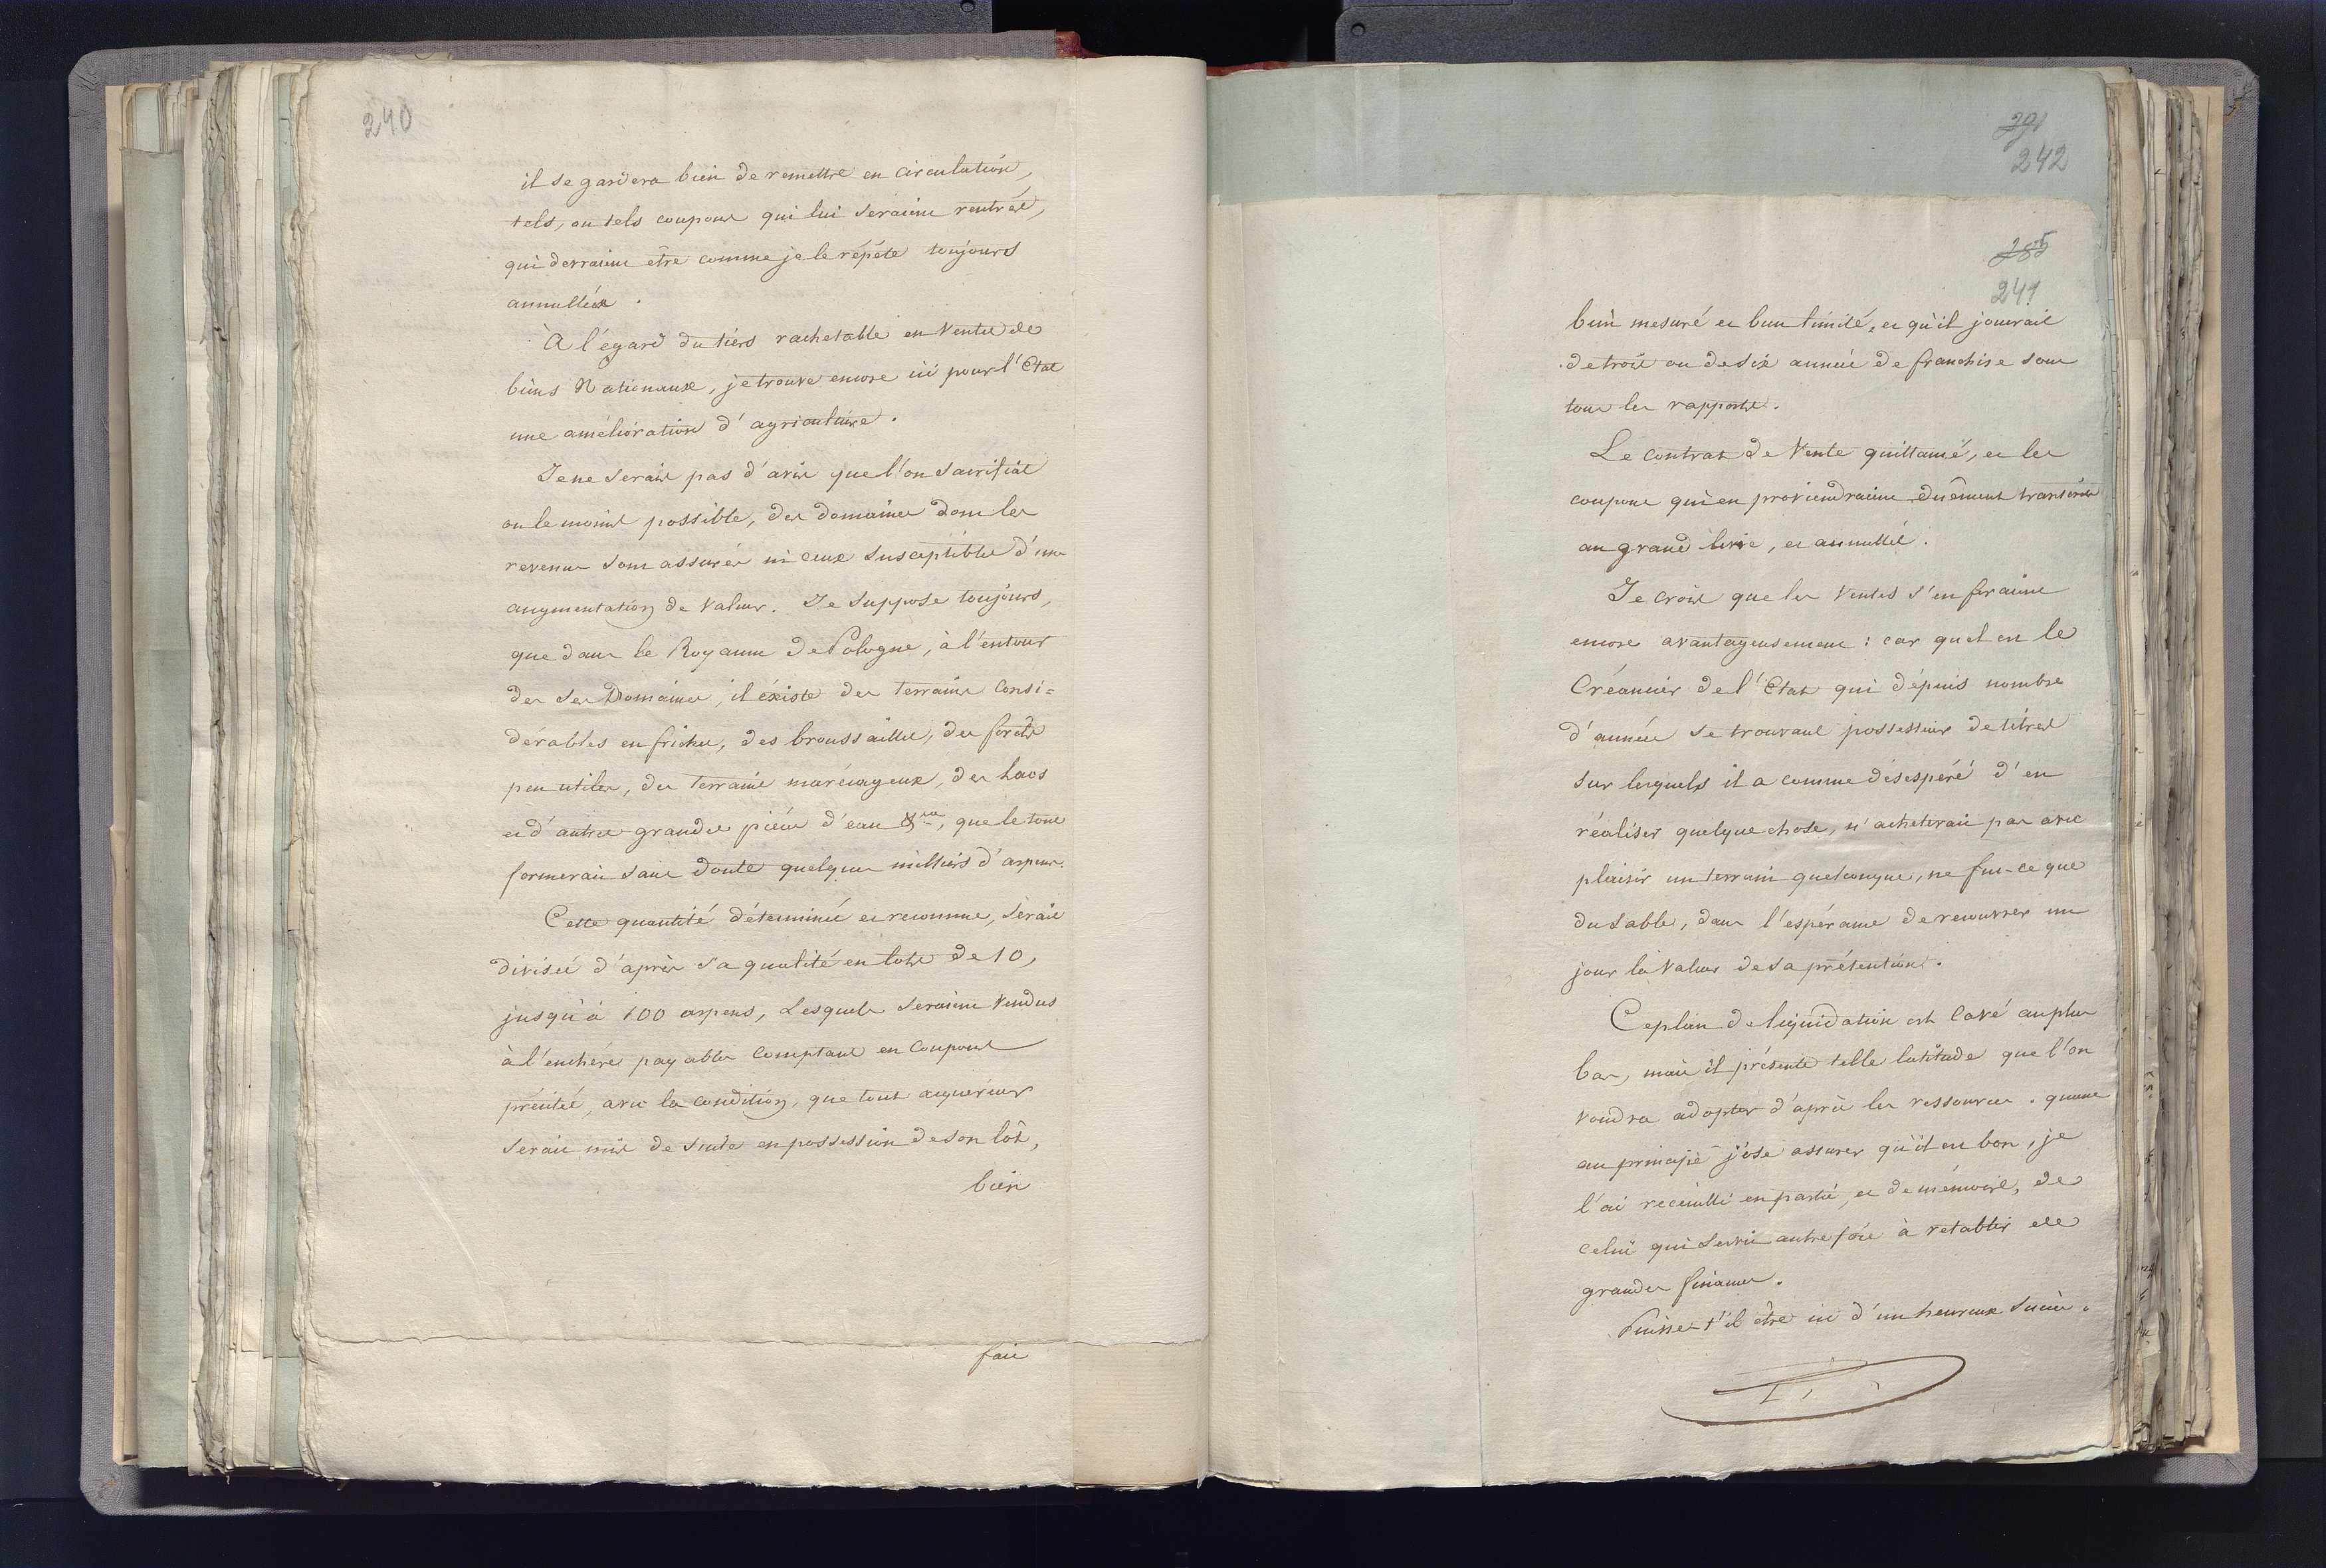 240
il se gardera bien de remettre en circulation,
tels, ou tels coupons qui lui seraient rentrés,
qui devraient être comme je le répéte toujours
annullées.
A l'égard du tiers rachetable en Ventes de
biens Nationaux, je trouve encore ici pour l'Etat
une amélioration d'agriculture.
Je ne serais pas d'avis que l'on sacrifiat
ou le moins possible, des domaines dont les
revenus sont assurés ni ceux susceptibles d'une
augmentation de Valeur. Je suppose toujours,
que dans le Royaume de Pologne, à l'entour
des ses Domaines, il éxiste des terrains Consi=
dérables en friches, des broussailles, des forêts
peu utiles, des terrains marécageux, des Lacs
et d'autres grandes pièces d'eau &ra, que le tout
formerait sans doute quelques milliers d'arpens.
Cette quantité déterminée et reconnue, serait
divisée d'après sa qualité en lots de 10,
jusqu'à 100 arpens, Lesquels seraient Vendus
à l'enchére payables Comptant en Coupons
précités, avec la condition, que tout acquereur
serait mis de suite en possession de son lot,
bien
fait
291
242
285
241
bien mesuré et bien limité, et qu'il jouirait
de trois ou de six années de franchise sous
tous les rapports.
Le Contrat de Vente quittancé, et les
coupons qu'en proviendraient duêment transcrits
au grand livre, et annullés.
Je crois que les Ventes s'en feraient
encore avantageusement: car quel est le
Créancier de l'Etat qui dépuis nombre
d'années se trouvant possesseur de titres
sur lesquels il a comme désespéré d'en
réaliser quelque chose, n'acheterait pas avec
plaisir un terrain quelconque, ne fut-ce que
du sable, dans l'espérance de recouvrer un
jour la Valeur de sa prétention.
Ce plan de liquidation est Cavé au plus
bas, mais il présente telle latitude que l'on
voudra adopter d'après les ressources. quant
au principe j'ose assurer qu'il est bon, je
l'ai recueilli en partie, et de mémoire, de
celui qui servit autrefois à retablir de
grandes finances.
Puisse t'il être ici d'un heureux succès.